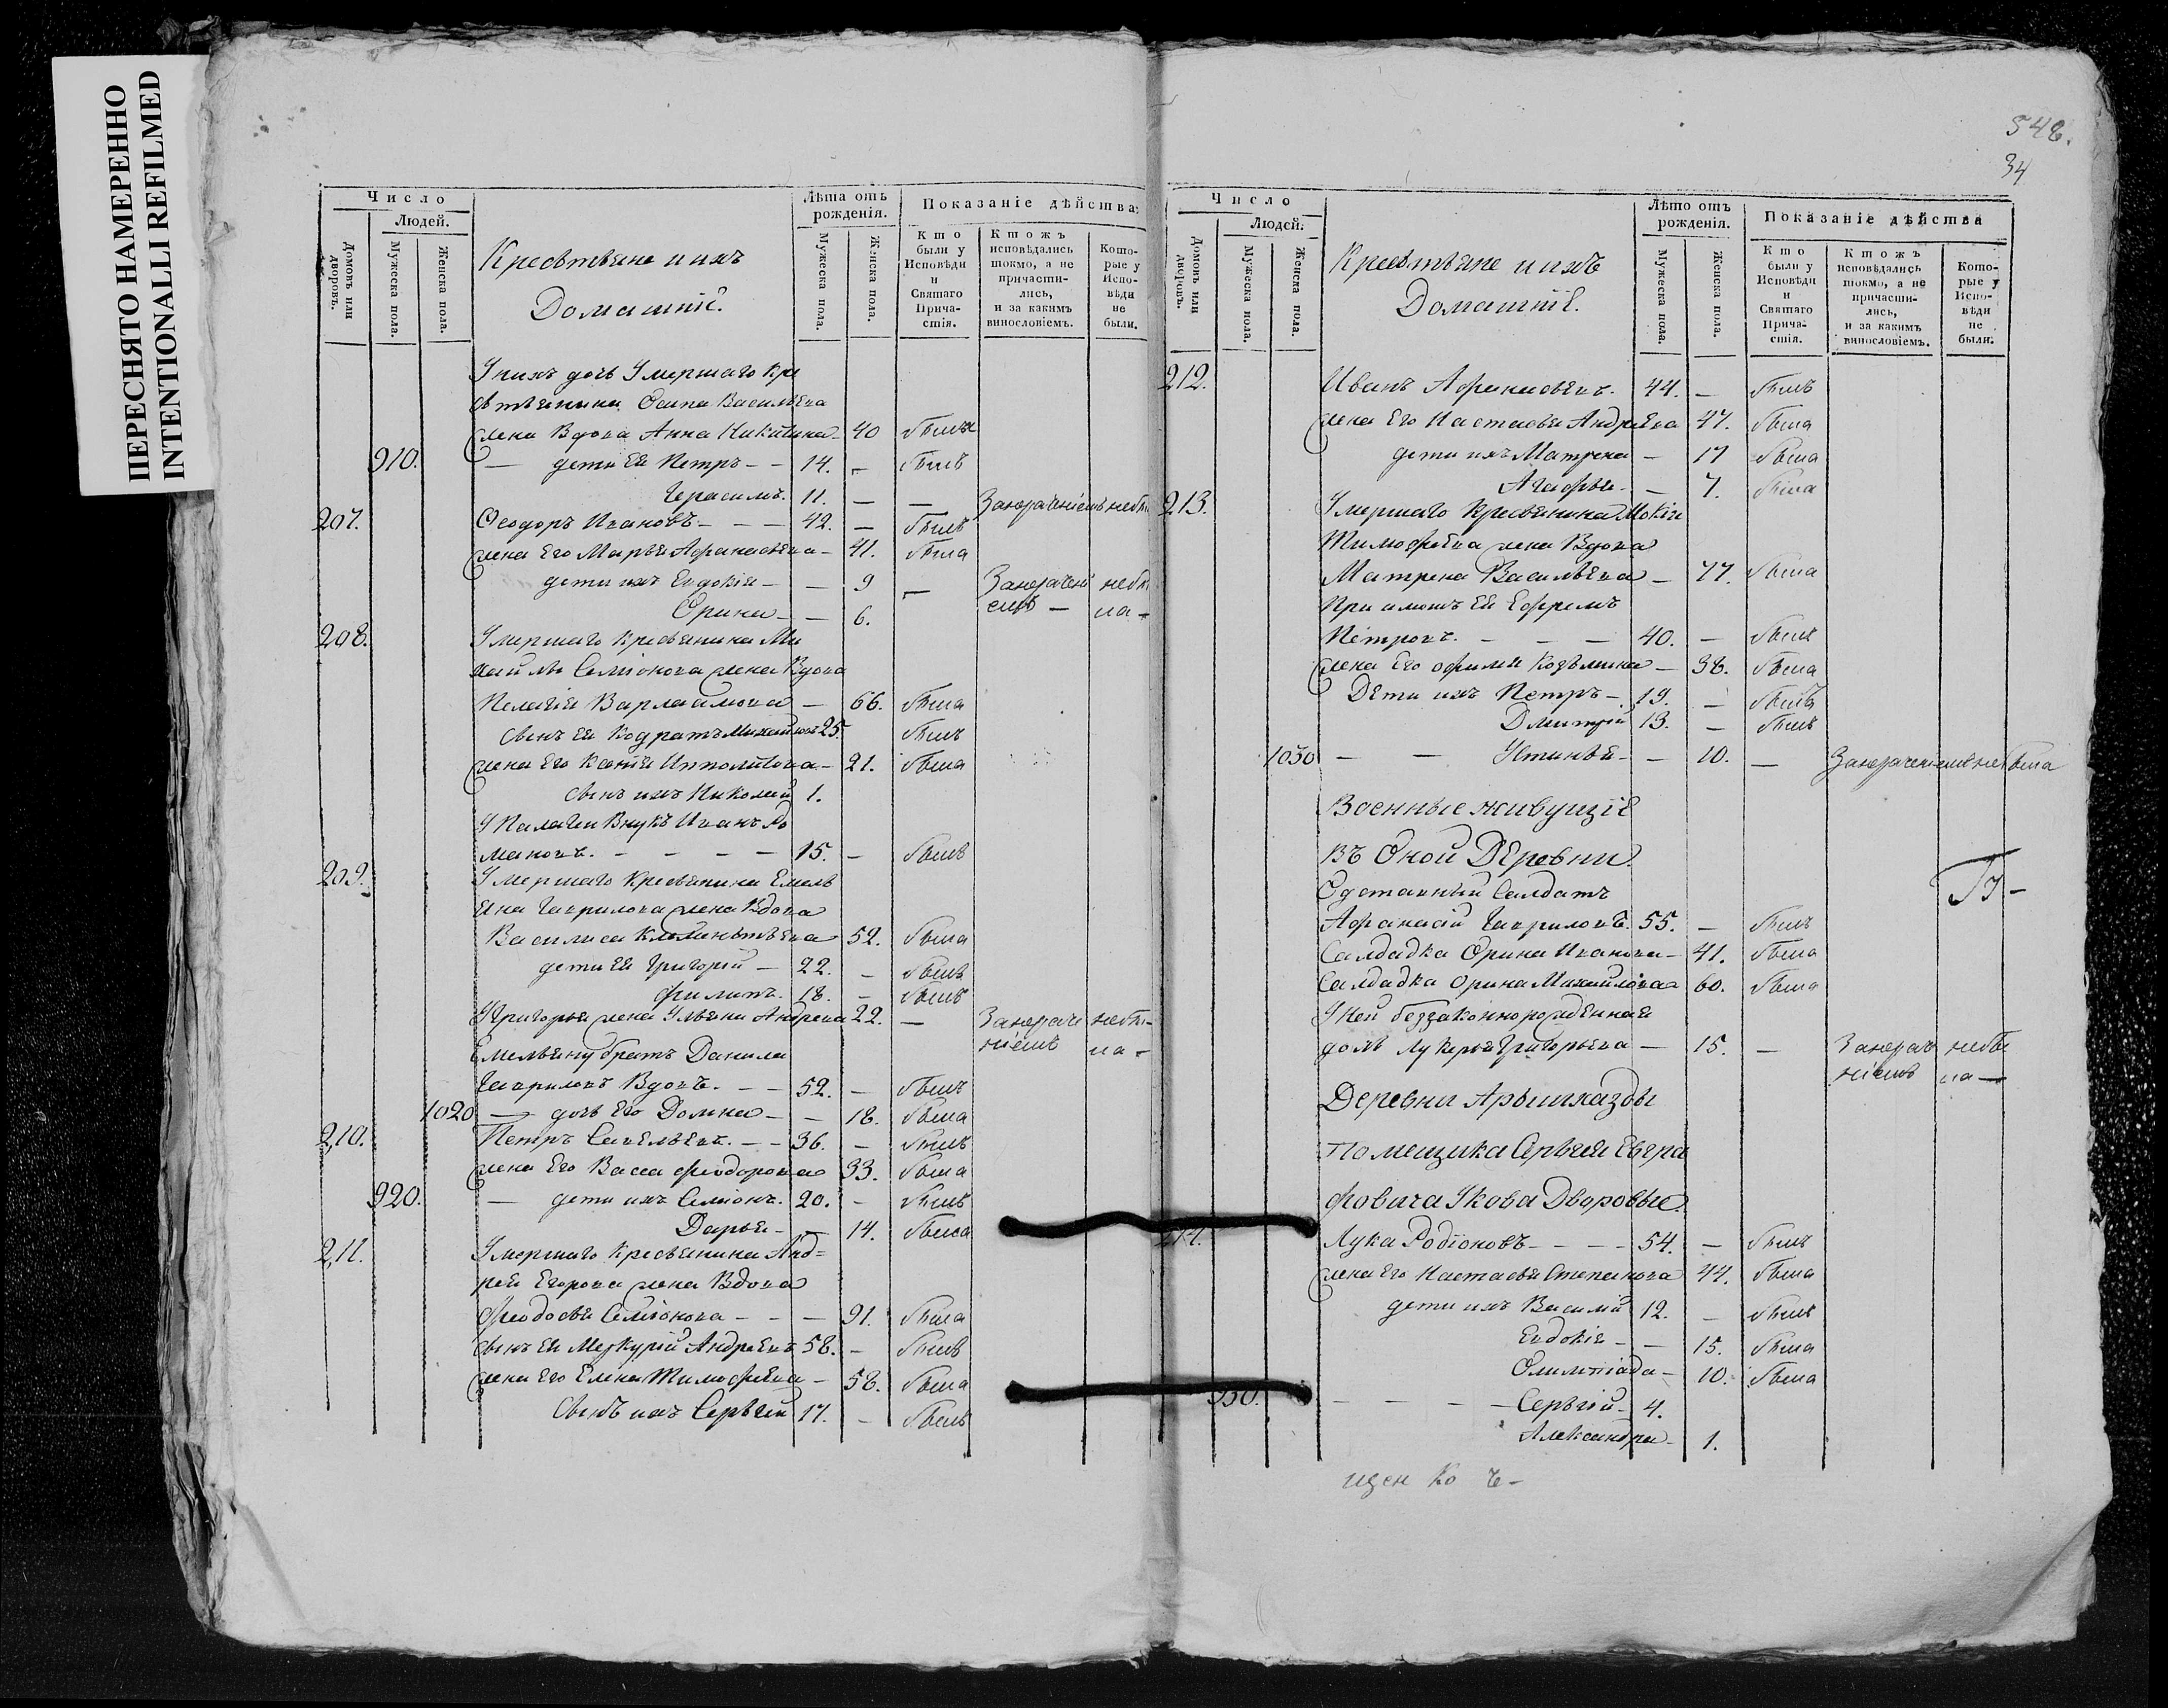 ПЕРЕСНЯТО НАМЕРЕННО
INTENTIONALLI REFILMED
Число
Людей.
Домовъ или дворовъ.
Мужеска пола.
Женска пола.
Крестьяне и ихъ
Домашніе.
Лѣта отъ рожденія.
Мужеска пола.
Женска пола.
Показаніе дѣйства.
Кто были у Исповѣди и Святаго Причастія.
Ктожъ исповѣдались токмо, а не причастились, и за какимъ винословіемъ.
Которые у Исповѣди не были.
У нихъ дочь Умершаго кре
стьянина Осипа Васильева
жена Вдова Анна Никитина - 40 была
910. — дети ей Петръ - - 14. - былъ
Герасимъ. 11. — —
207. Феодоръ Ивановъ - - - 42. — былъ
жена Его Марья Афанасьева - 41. была
дети ихъ Евдокія - — 9 —
Орина - — 6.
208. Умершаго Крестьянина Ми
хайлы Семіонова жена Вдова
Пелагія Варлаамова — 66. была
сынъ ей Кодратъ Михайловъ 25. былъ
жена Его Ксенія Ипполитова - 21. была
сынъ ихъ Николай 1.
У Палагеи Внукъ Иванъ Ро
мановъ. - - - — 15. - былъ
209. Умершаго Крестьянина Емель
яна Гаврилова жена Вдова
Василиса Клеминтьева 52. была
дети ей Григорій — 22. - былъ
Филипъ. 18. - былъ
У Григорья жена Ульяна Андреева 22. —
Емельяну братъ Данила
Гавриловъ Вдовъ. - — 52. - былъ
1020 — дочь Его Домна - — 18. была
210. Петръ Савельевъ. - - 36. - былъ
жена Его Васса Феодорова 33. была
920. — дети ихъ Семіонъ. 20. - былъ
Дарья - — 14. была
211. Умершаго Крестьянина Анд=
рея Егорова жена Вдова
Феодосья Семіонова - - — 91. была
сынъ ей Меркурій Андреевъ 58. - былъ
жена Его Елена Тимофеева - 58. была
Сынъ ихъ Сергѣй 17. - былъ
548.
34
Число
Людей.
Домовъ или дворовъ.
Мужеска пола.
Женска пола.
Крестьяне и ихъ
Домашніе.
Лѣто отъ рожденія.
Мужеска пола.
Женска пола.
Показаніе дѣйства
Кто были у Исповѣди и Святаго Причастія.
Ктожъ исповѣдались токмо, а не причастились, и за какимъ винословіемъ.
Которые у Исповѣди не были.
212. Иванъ Афанасьевъ. 44. - былъ
жена Его Настасья Андреева 47. была
дети ихъ Матрена — 17 была
Агафья - — 7. была
213. Умершаго Крестьянина Мокія
Тимофеева жена Вдова
Матрена Васильева — 77. была
Приимошъ ей Ефремъ
Петровъ. - — — 40. — былъ
жена Его офимья Козьмина — 38. была
Дети ихъ Петръ - 19. — былъ
Дмитрій 13. — былъ
1030 — — Устинья - — 10. —
Военные живущіе
въ Оной Деревни.
Одставный Салдатъ
Афанасій Гавриловъ. 55. — былъ
Салдадка Орина Иванова - 41. была
Салдадка Орина Михайлова 60. была
У ней беззаконнорожденная
дочь Лукерья Григорьева — 15. —
Деревни Арышхазды
Помещика Сергѣя Евгра
фовича Жкова Дворовые.
214. Лука Родіоновъ - - - - 54. — былъ
жена Его Настасья Степанова 44. была
дети ихъ Василій 12. — былъ
Евдокія - — 15. была
Олимпіада - 10. была
930. — — — Сергѣй - 4.
Александра - 1.
щен Ко ъ -